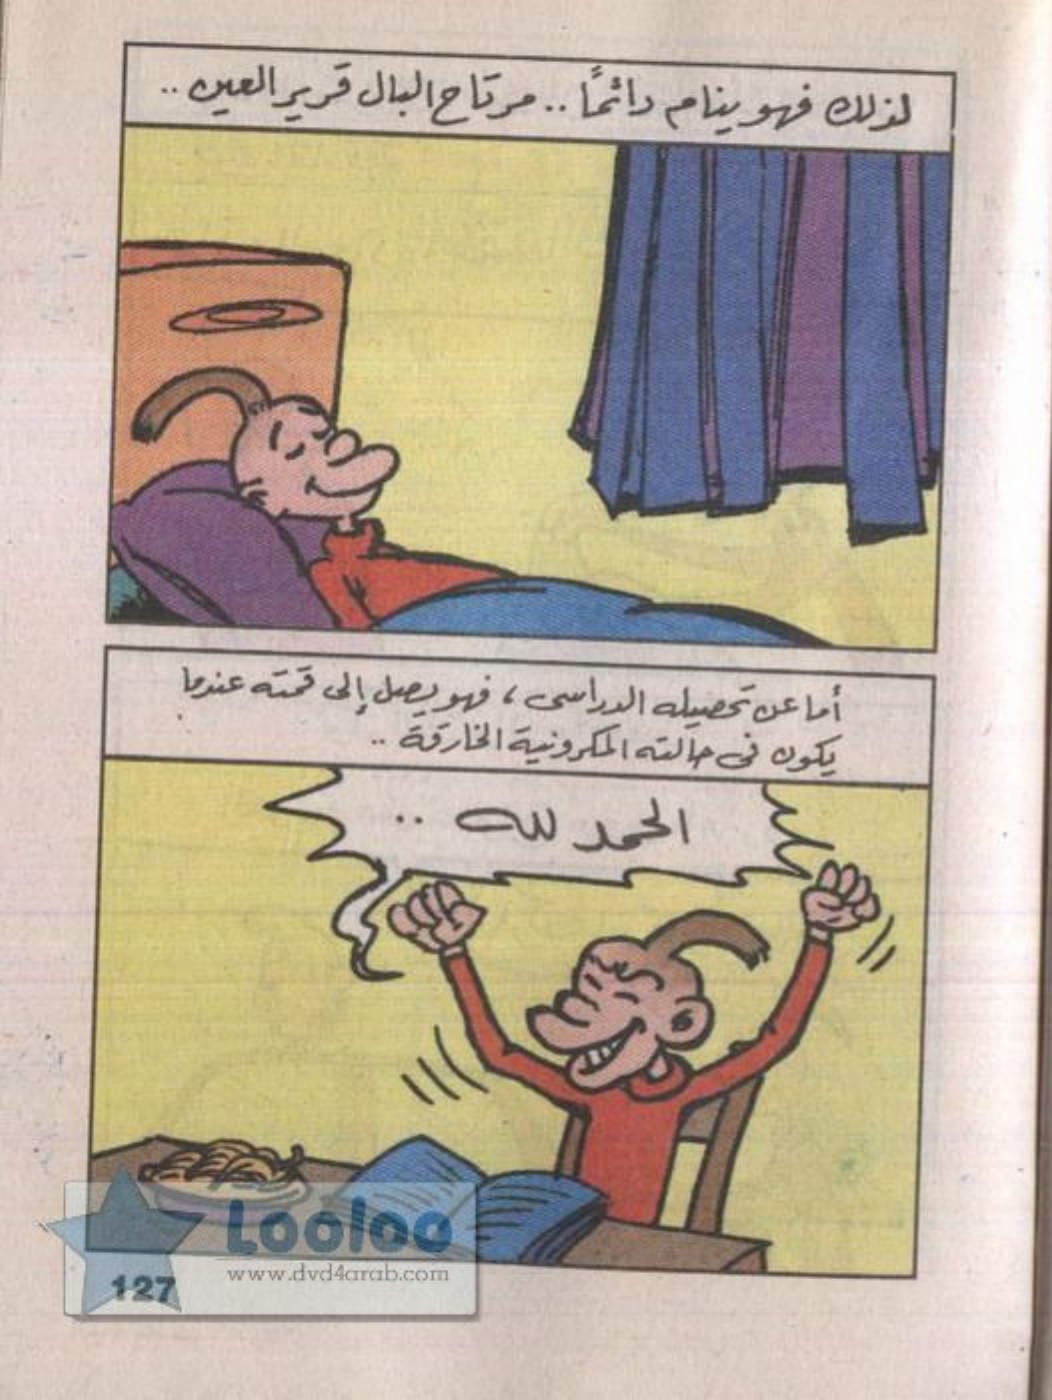 لذلك فهو ينام دائمًا .. مرتاح البال قرير العين ..
أما عن تحصيله الدراسى ، فهو يصل إلى قمته عندما
يكون فى حالته المكرونية الخارقة ..
الحمد لله ..
Looloo
www.dvd4arab.com
127